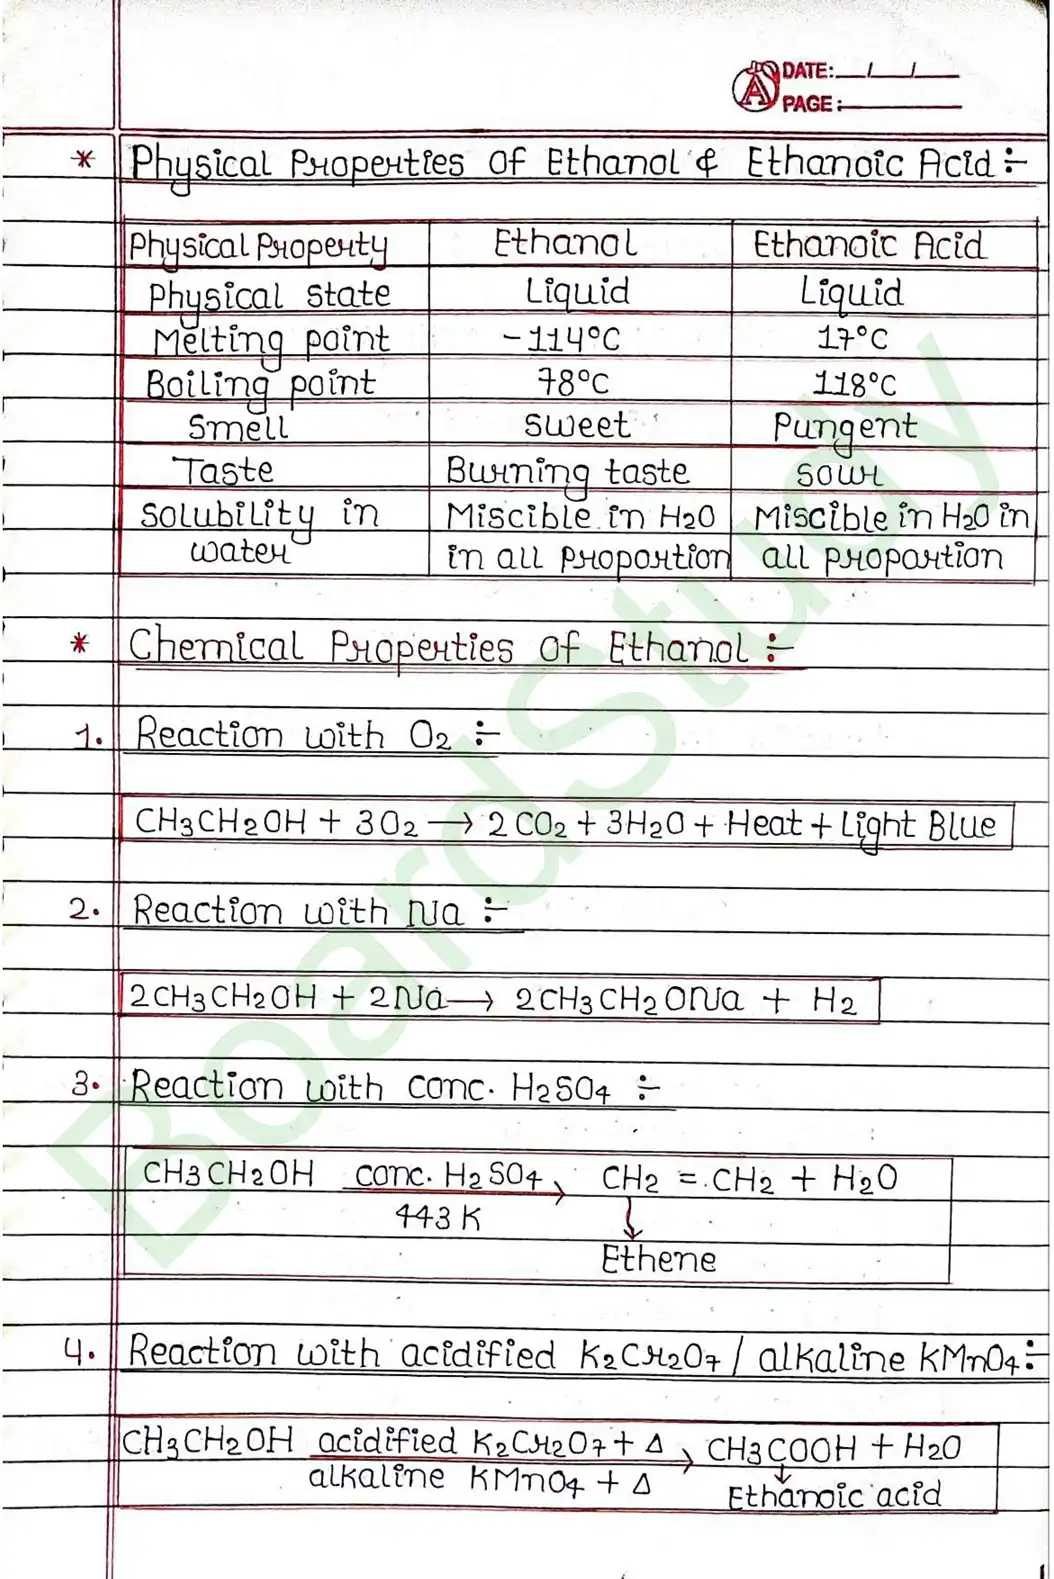 DATE: __/__/__
PAGE:
* Physical Properties of Ethanol & Ethanoic Acid :-
Physical Property Ethanol Ethanoic Acid
Physical state Liquid Liquid
Melting point -114°C 17°C
Boiling point 78°C 118°C
Smell Sweet Pungent
Taste Burning taste Sour
Solubility in water Miscible in H2O in all proportion Miscible in H2O in all proportion
* Chemical Properties of Ethanol :-
1. Reaction with O2 :-
CH3CH2OH + 3O2 → 2CO2 + 3H2O + Heat + Light Blue
2. Reaction with Na :-
2CH3CH2OH + 2Na → 2CH3CH2ONa + H2
3. Reaction with conc. H2SO4 :-
CH3CH2OH conc. H2SO4 → CH2 = CH2 + H2O
443 K ↓
Ethene
4. Reaction with acidified K2Cr2O7 / alkaline KMnO4 :-
CH3CH2OH acidified K2Cr2O7 + Δ → CH3COOH + H2O
alkaline KMnO4 + Δ ↓
Ethanoic acid
BoardStudy